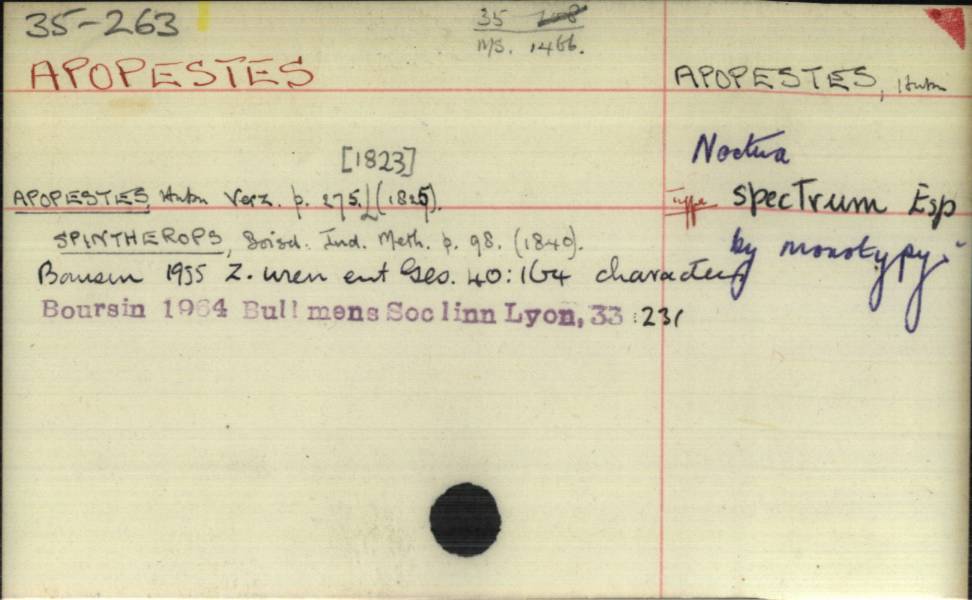 35-263
35 208
MS. 1466.
APOPESTES
APOPESTES, Hubn
[1823]
Noctua
APOPESTES, Hubn Verz. p. 275. (1825).
Type spectrum Esp
SPINTHEROPS, Boisd. Ind. Meth. p. 98. (1840).
by monotypy
Boursin 1955 Z. wien ent Ges. 40:164 characters
Boursin 1964 Bull mens Soc linn Lyon, 33 :231